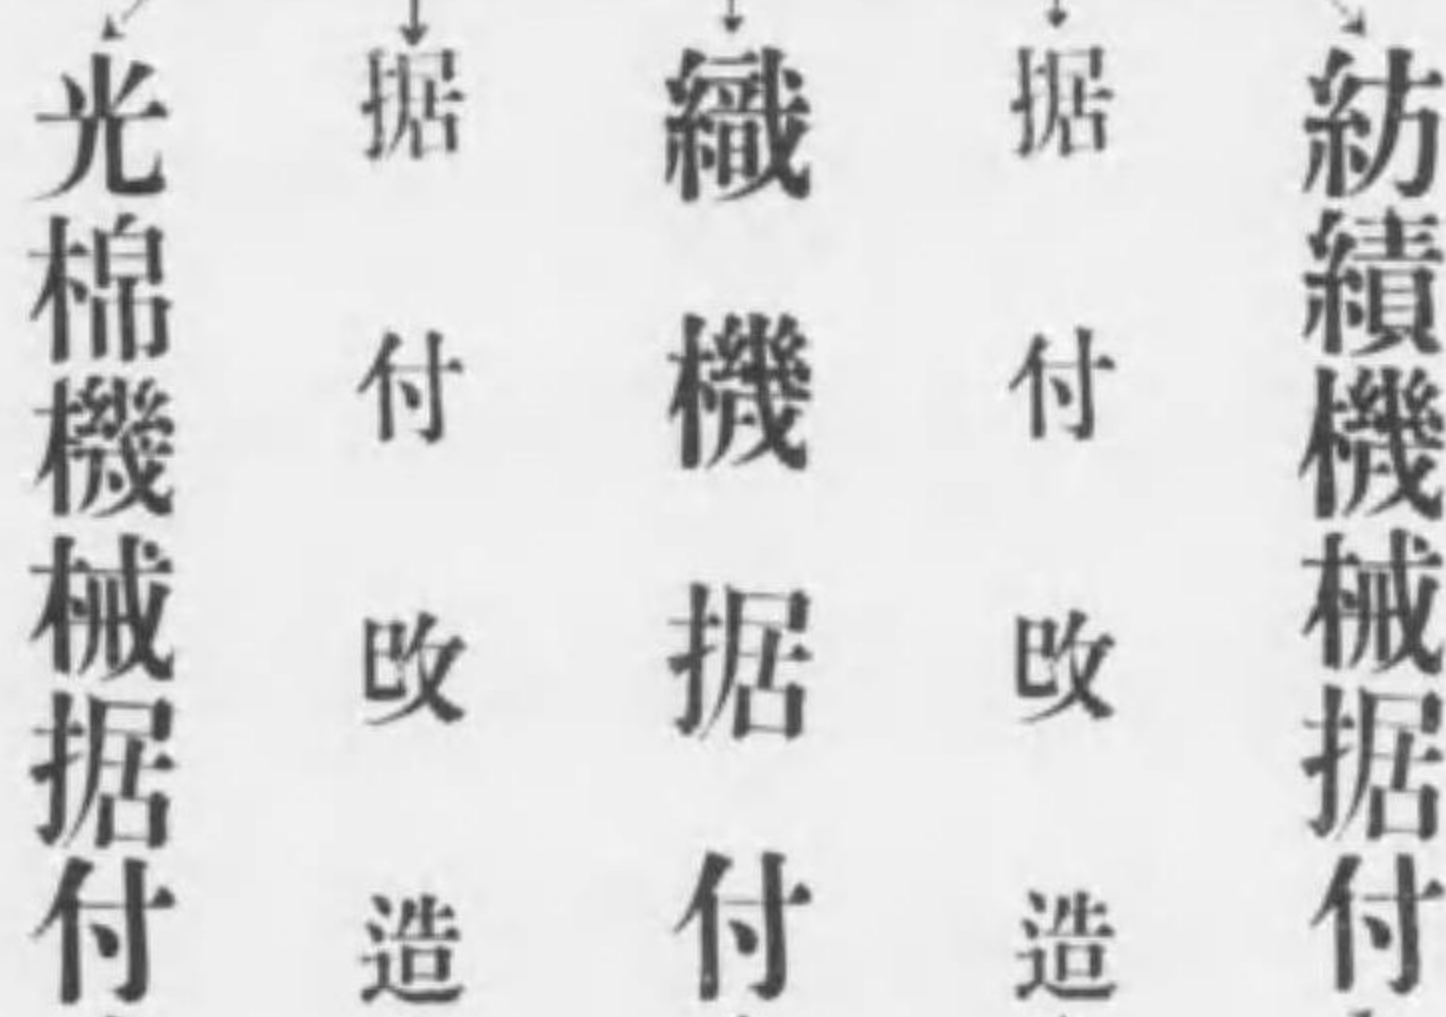 紡績機械据付
据付改造
織機据付
据付改造
光棉機械据付